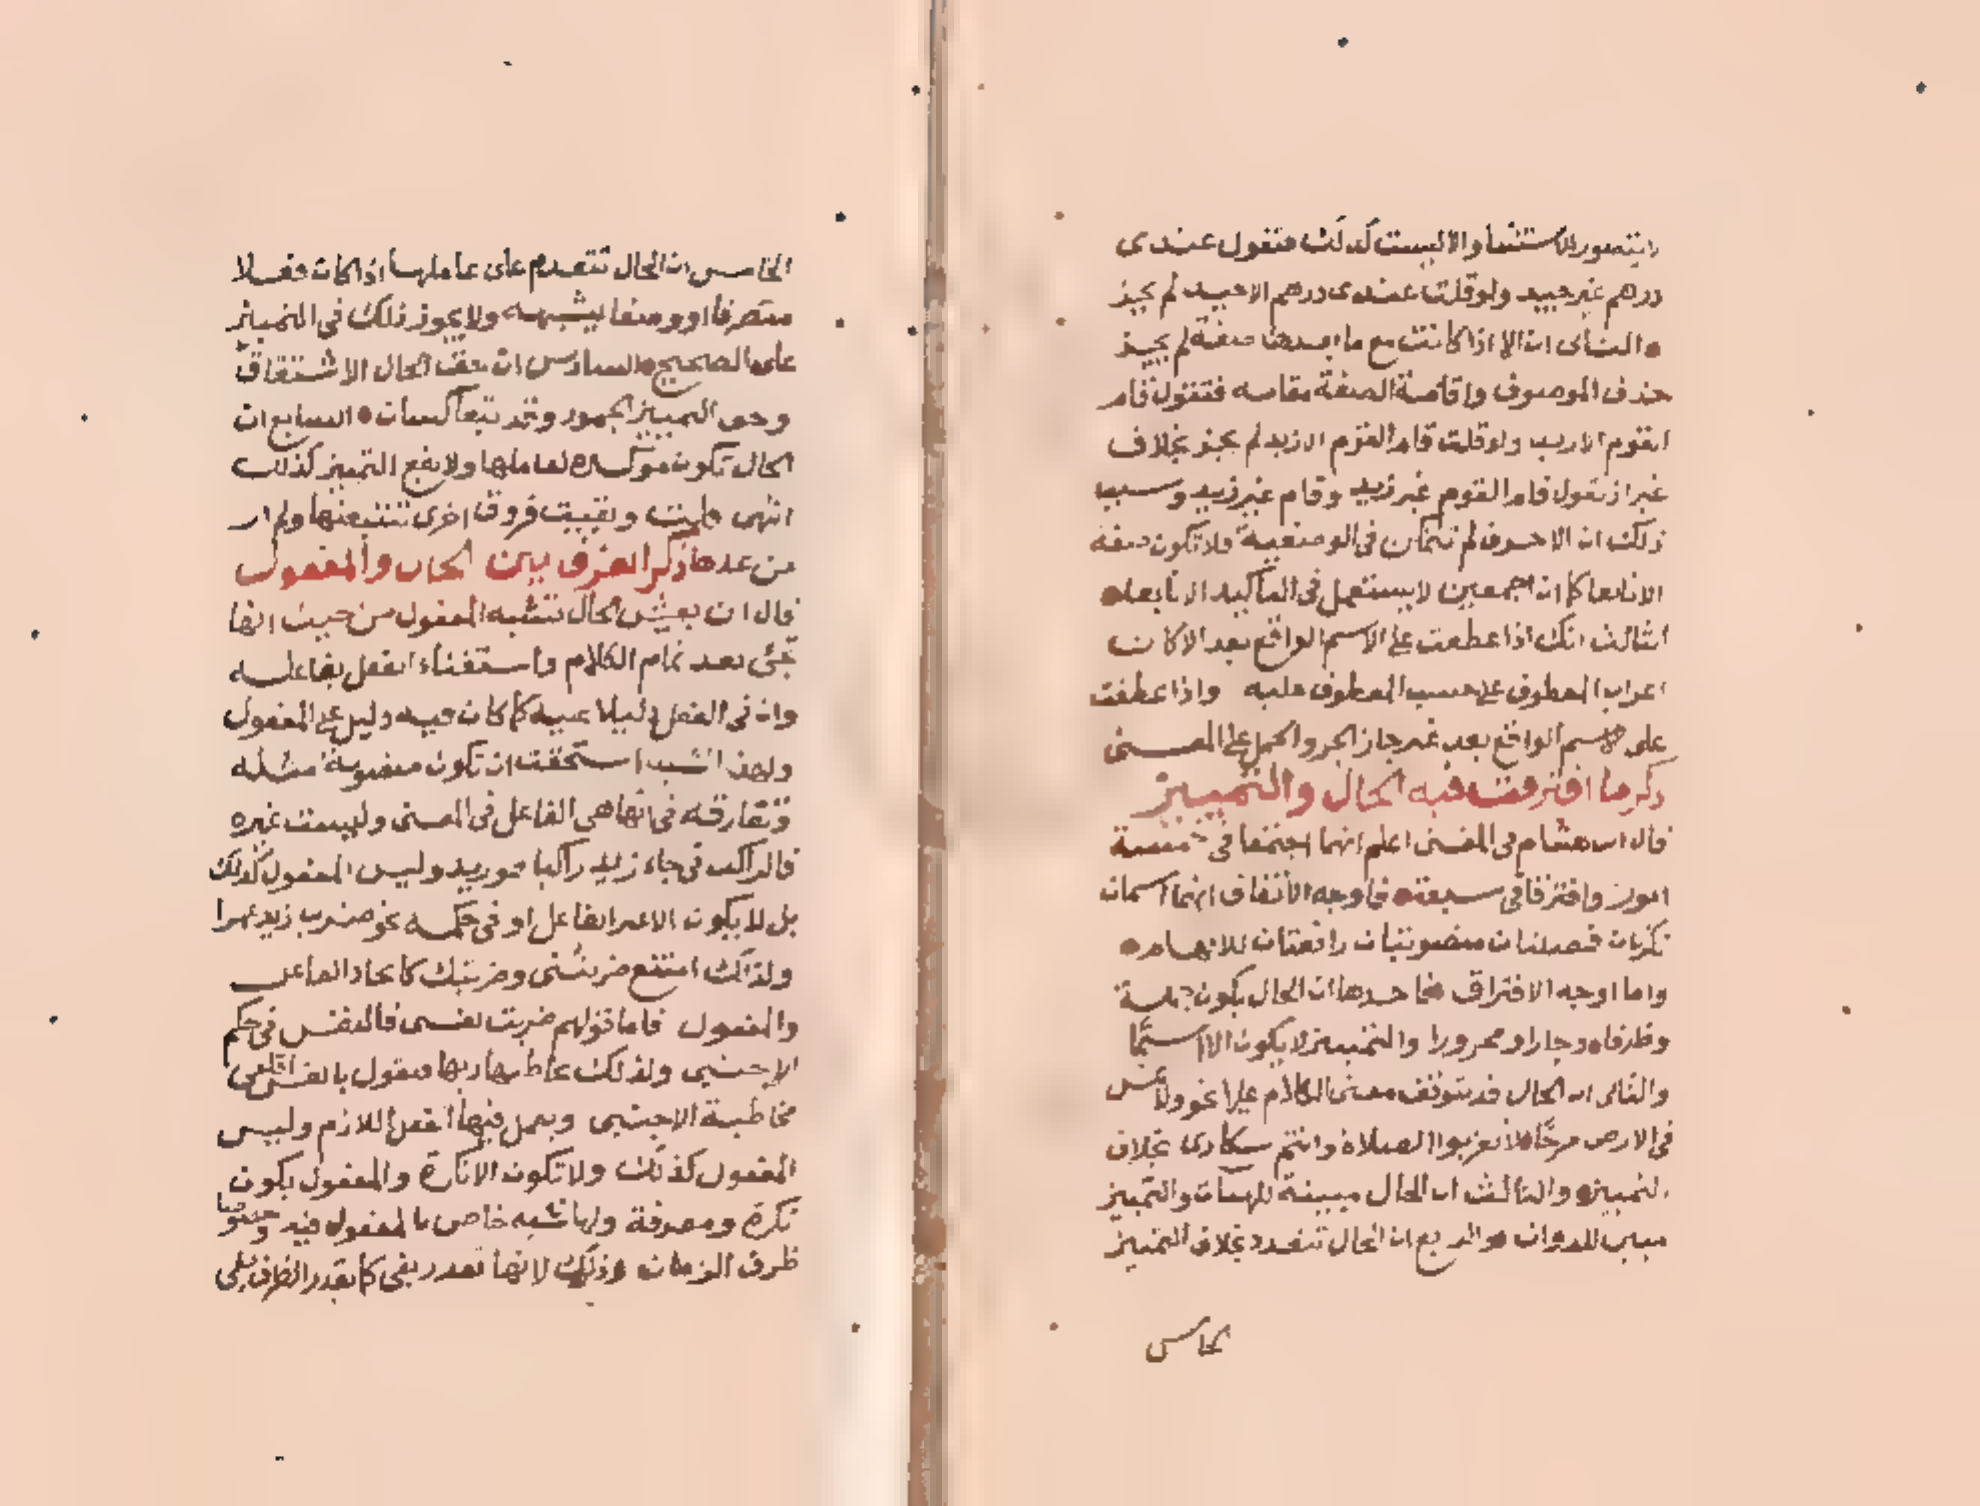 يتصور الاستثنا والا ليست كذلك فتقول عندى
درهم غير جيد ولو قلت عندى درهم الا جيد لم يجز
الثانى ان الا اذا كانت مع ما بعدها صفة لم يجز
حذف الموصوف واقامة الصفة مقامه فتقول قام
القوم الا زيد ولو قلت قام الا زيد لم يجز بخلاف
غير اذ تقول قام القوم غير زيد وقام غير زيد وسبب
ذلك ان الا حرف لم تتمكن فى الوصفية فلا تكون صفة
الا تابعا كما ان اجمعين لا يستعمل فى التأكيد الا تابعا
الثالث انك اذا عطفت على الاسم الواقع بعد الا كان
اعراب المعطوف على حسب المعطوف عليه واذا عطفت
على الاسم الواقع بعد غير جاز الجر والحمل على المعنى
ذكر ما افترقت فيه الحال والتمييز
قال ابن هشام فى المغنى اعلم انهما اجتمعا فى خمسة
امور وافترقا فى سبعة فاوجه الاتفاق انهما اسمان
نكرتان فضلتان منصوبتان رافعتان للابهام
واما اوجه الافتراق فاحدها ان الحال يكون جملة
وظرفا وجارا ومجرورا والتمييز لا يكون الا اسما
والثانى ان الحال قد يتوقف معنى الكلام عليها نحو ولا تمش
فى الارض مرحا لا تقربوا الصلاة وانتم سكارى بخلاف
التمييز والثالث ان الحال مبينة للهيآت والتمييز
مبين للذوات والرابع ان الحال تتعدد بخلاف التمييز
الخامس
الخامس ان الحال تتقدم على عاملها اذا كان فعلا
متصرفا او وصفا يشبهه ولا يجوز ذلك فى التمييز
على الصحيح السادس ان حق الحال الاشتقاق
وحق التمييز الجمود وقد يتعاكسان السابع ان
الحال تكون موكدة لعاملها ولا يقع التمييز كذلك
انتهى قلت وبقيت فروق اخرى تتبعتها ولم ار
من عدها ذكر الفرق بين الحال والمفعول
قال ابن يعيش الحال تشبه المفعول من حيث انها
تجئ بعد تمام الكلام واستغناء الفعل بفاعله
وان فى الفعل دليلا عليه كما كان فيه دليل على المفعول
ولهذا الشبه استحقت ان تكون منصوبة مثله
وتفارقه فى انها هى الفاعل فى المعنى وليست غيره
فالراكب فى جاء زيد راكبا هو زيد وليس المفعول كذلك
بل لا يكون الا غير الفاعل او فى حكمه نحو ضرب زيد عمرا
ولذلك امتنع ضربتنى وضربتك لاتحاد الفاعل
والمفعول فاما قولهم ضربت نفسى فالنفس فى حكم
الاجنبى ولذلك يخاطبها ربها فيقول يا نفس اقلعى
مخاطبة الاجنبى ويعمل فيها الفعل اللازم وليس
المفعول كذلك ولا تكون الا نكرة والمفعول يكون
نكرة ومعرفة ولها شبه خاص بالمفعول فيه وخصوصا
ظرف الزمان وذلك لانها تقدر بفى كما يقدر الظرف بفى